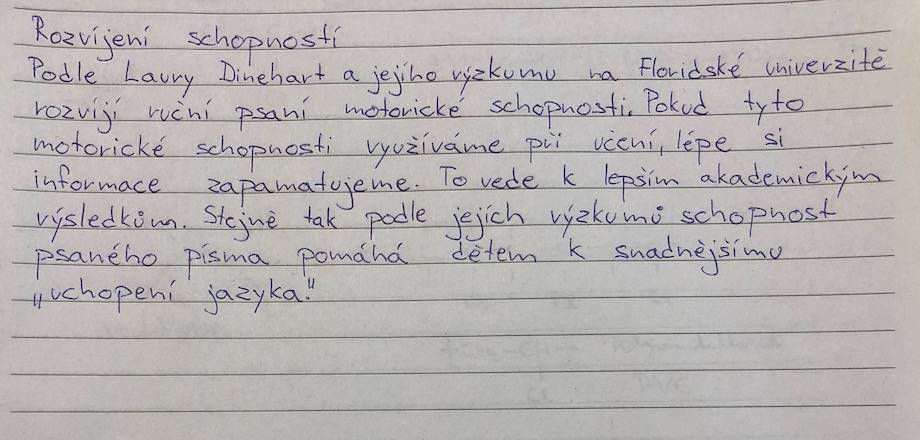 Rozvíjení schopností
Podle Laury Dinehart a jejího výzkumu na Floridské univerzitě
rozvíjí ruční psaní motorické schopnosti. Pokud tyto
motorické schopnosti využíváme při učení, lépe si
informace zapamatujeme. To vede k lepsím akademickým
výsledkům. Stejně tak podle jejích výzkumů schopnost
psaného písma pomáhá dětem k snadnějšímu
„uchopení jazyka."